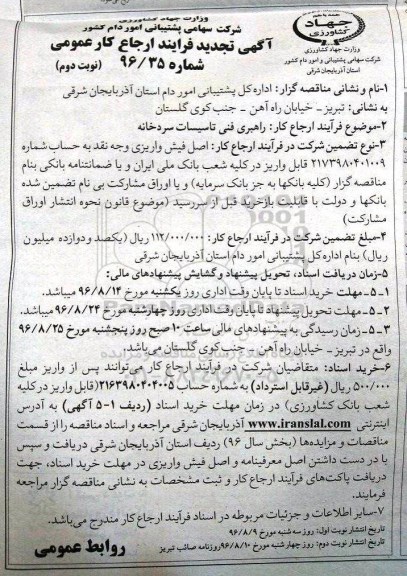 وزارت جهاد کشاورزی
شرکت سهامی پشتیبانی امور دام کشور
آگهی تجدید فرایند ارجاع کار عمومی
شماره ۹۶/۳۵ (نوبت دوم)
جهاد
کشاورزی
وزارت جهاد کشاورزی
شرکت سهامی پشتیبانی و امور دام کشور
استان آذربایجان شرقی
۱-نام و نشانی مناقصه گزار: اداره کل پشتیبانی امور دام استان آذربایجان شرقی
به نشانی: تبریز - خیابان راه آهن - جنب کوی گلستان
۲-موضوع فرآیند ارجاع کار: راهبری فنی تاسیسات سردخانه
۳-نوع تضمین شرکت در فرآیند ارجاع کار: اصل فیش واریزی وجه نقد به حساب شماره
۲۱۷۳۹۸۰۴۰۱۰۰۹ قابل واریز در کلیه شعب بانک ملی ایران و یا ضمانتنامه بانکی بنام
مناقصه گزار (کلیه بانکها به جز بانک سرمایه) و یا اوراق مشارکت بی نام تضمین شده
بانکها و دولت با قابلیت بازخرید قبل از سررسید (موضوع قانون نحوه انتشار اوراق
مشارکت)
۴-مبلغ تضمین شرکت در فرآیند ارجاع کار: ۱۱۲/۰۰۰/۰۰۰ ریال (یکصد و دوازده میلیون
ریال) بنام اداره کل پشتیبانی امور دام استان آذربایجان شرقی
۵-زمان دریافت اسناد، تحویل پیشنهاد و گشایش پیشنهادهای مالی:
۵-۱- مهلت خرید اسناد تا پایان وقت اداری روز یکشنبه مورخ ۹۶/۸/۱۴ میباشد.
۵-۲- مهلت تحویل پیشنهاد تا پایان وقت اداری روز چهارشنبه مورخ ۹۶/۸/۲۴ میباشد.
۵-۳- زمان رسیدگی به پیشنهادهای مالی ساعت ۱۰ صبح روز پنجشنبه مورخ ۹۶/۸/۲۵
واقع در تبریز - خیابان راه آهن - جنب کوی گلستان می‌باشد.
۶-خرید اسناد: متقاضیان شرکت در فرآیند ارجاع کار می‌توانند پس از واریز مبلغ
۵۰۰/۰۰۰ ریال (غیرقابل استرداد) به شماره حساب ۲۱۶۳۹۸۰۴۰۴۰۰۵ (قابل واریز در کلیه
شعب بانک کشاورزی) در زمان مهلت خرید اسناد (ردیف ۱-۵ آگهی) به آدرس
اینترنتی www.iranslal.com آذربایجان شرقی مراجعه و اسناد مناقصه را از قسمت
مناقصات و مزایده‌ها (بخش سال ۹۶) ردیف استان آذربایجان شرقی دریافت و سپس
با در دست داشتن اصل معرفینامه و اصل فیش واریزی در مهلت خرید اسناد، جهت
دریافت پاکت‌های فرآیند ارجاع کار و ثبت مشخصات به نشانی مناقصه گزار مراجعه
فرمایند.
۷-سایر اطلاعات و جزئیات مربوطه در اسناد فرآیند ارجاع کار مندرج می‌باشد.
تاریخ انتشار نوبت اول: روز سه شنبه مورخ ۹۶/۸/۹
تاریخ انتشار نوبت دوم: روز چهارشنبه مورخ ۹۶/۸/۱۰ روزنامه صائب تبریز
روابط عمومی